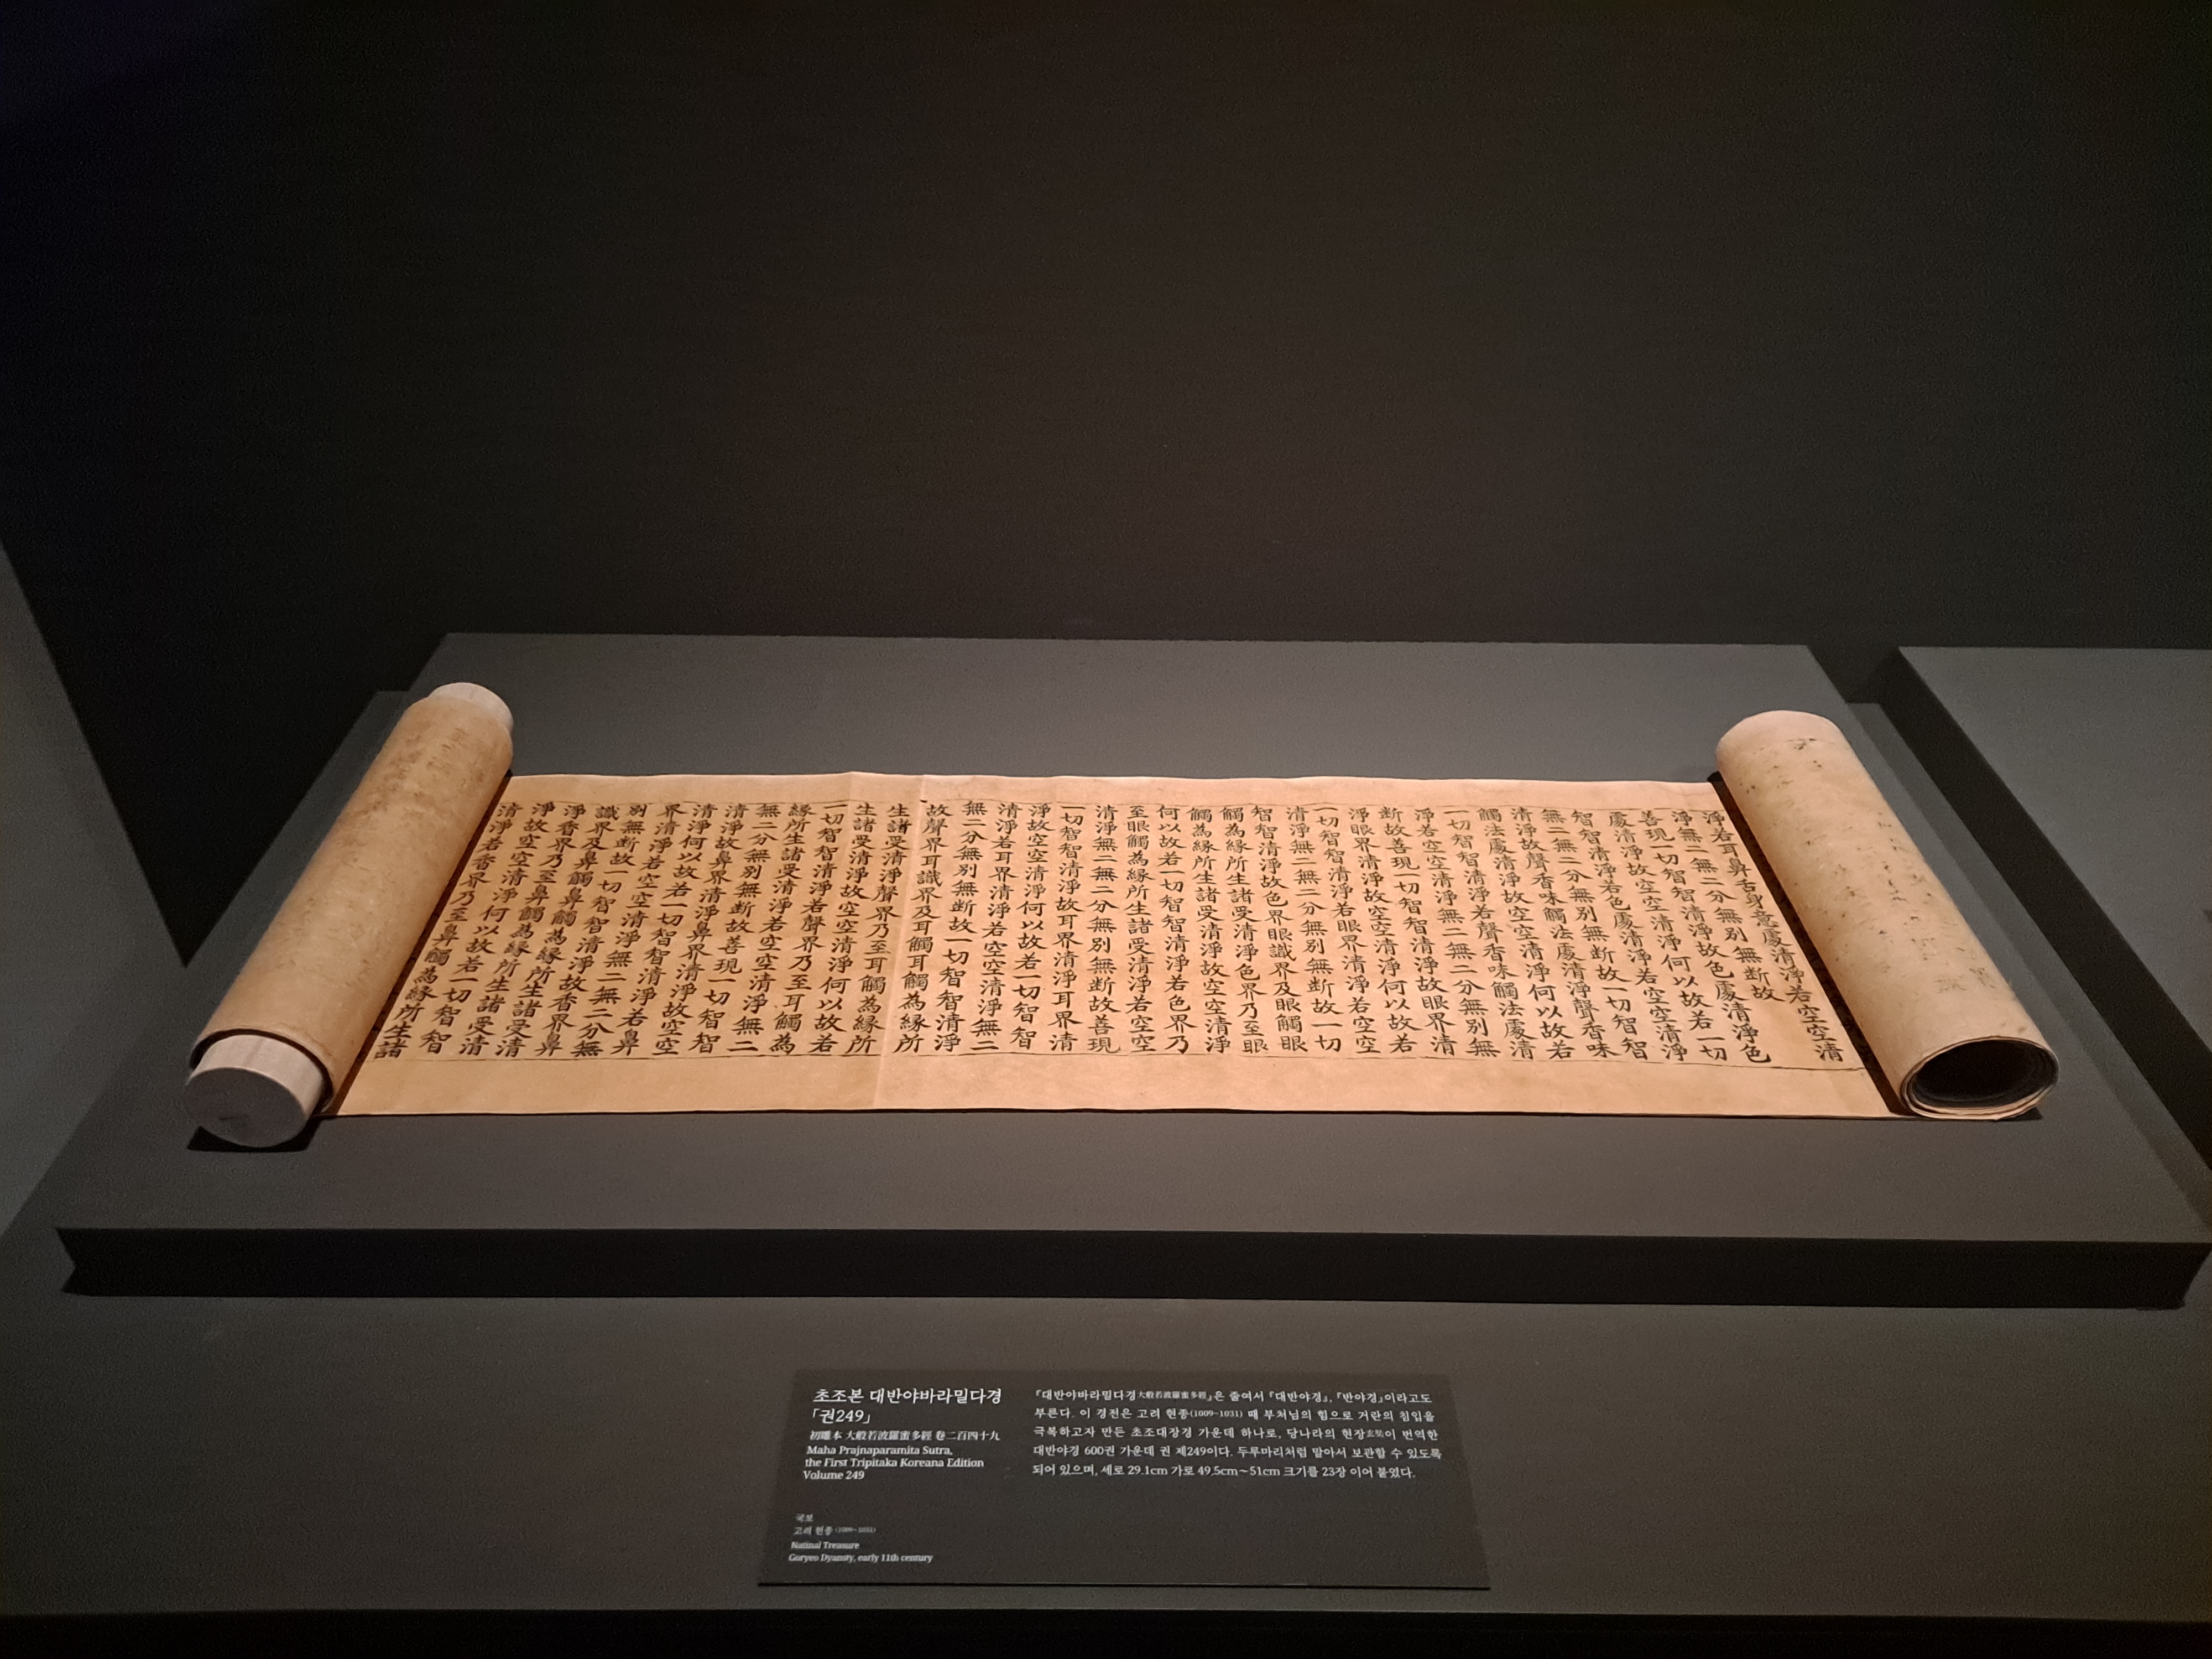 淨若耳鼻舌身意處清淨若空空清
淨無二無二分無別無断故
善現一切智智清淨故色處清淨色
處清淨故空空清淨何以故若一切
智智清淨若色處清淨若空空清淨
無二無二分無別無断故一切智智
清淨故聲香味觸法處清淨聲香味
觸法處清淨故空空清淨何以故若
一切智智清淨若聲香味觸法處清
淨若空空清淨無二無二分無別無
断故善現一切智智清淨故眼界清
淨眼界清淨故空空清淨何以故若
一切智智清淨若眼界清淨若空空
清淨無二無二分無別無断故一切
智智清淨故色界眼識界及眼觸眼
觸為緣所生諸受清淨色界乃至眼
觸為緣所生諸受清淨故空空清淨
何以故若一切智智清淨若色界乃
至眼觸為緣所生諸受清淨若空空
清淨無二無二分無別無断故善現
一切智智清淨故耳界清淨耳界清
淨故空空清淨何以故若一切智智
清淨若耳界清淨若空空清淨無二
無二分無別無断故一切智智清淨
故聲界耳識界及耳觸耳觸為緣所
生諸受清淨聲界乃至耳觸為緣所
生諸受清淨故空空清淨何以故若
一切智智清淨若聲界乃至耳觸為
緣所生諸受清淨若空空清淨無二
無二分無別無断故善現一切智智
清淨故鼻界清淨鼻界清淨故空空
清淨何以故若一切智智清淨若鼻
界清淨若空空清淨無二無二分無
別無断故一切智智清淨故香界鼻
識界及鼻觸鼻觸為緣所生諸受清
淨香界乃至鼻觸為緣所生諸受清
淨故空空清淨何以故若一切智智
清淨若香界乃至鼻觸為緣所生諸
초조본 대반야바라밀다경
「권249」
初雕本 大般若波羅蜜多經 卷二百四十九
Maha Prajnaparamita Sutra,
the First Tripitaka Koreana Edition
Volume 249
국보
고려 현종(1009~1031)
Natinal Treasure
Goryeo Dyansty, early 11th century
『대반야바라밀다경大般若波羅蜜多經』은 줄여서 『대반야경』, 『반야경』이라고도
부른다. 이 경전은 고려 현종(1009~1031) 때 부처님의 힘으로 거란의 침입을
극복하고자 만든 초조대장경 가운데 하나로, 당나라의 현장玄奘이 번역한
대반야경 600권 가운데 권 제249이다. 두루마리처럼 말아서 보관할 수 있도록
되어 있으며, 세로 29.1cm 가로 49.5cm~51cm 크기를 23장 이어 붙였다.